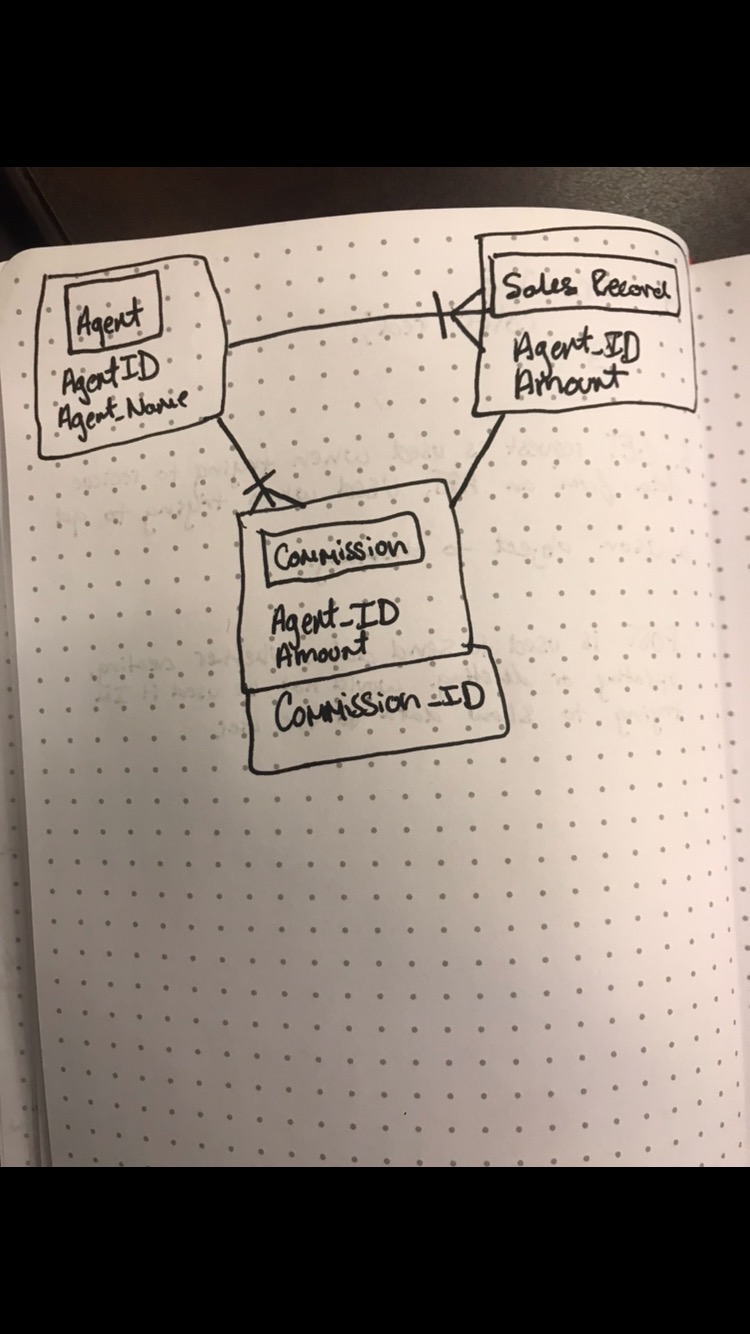 Agent
AgentID
Agent_Name
Sales Record
Agent_ID
Amount
Commission
Agent_ID
Amount
Commission_ID